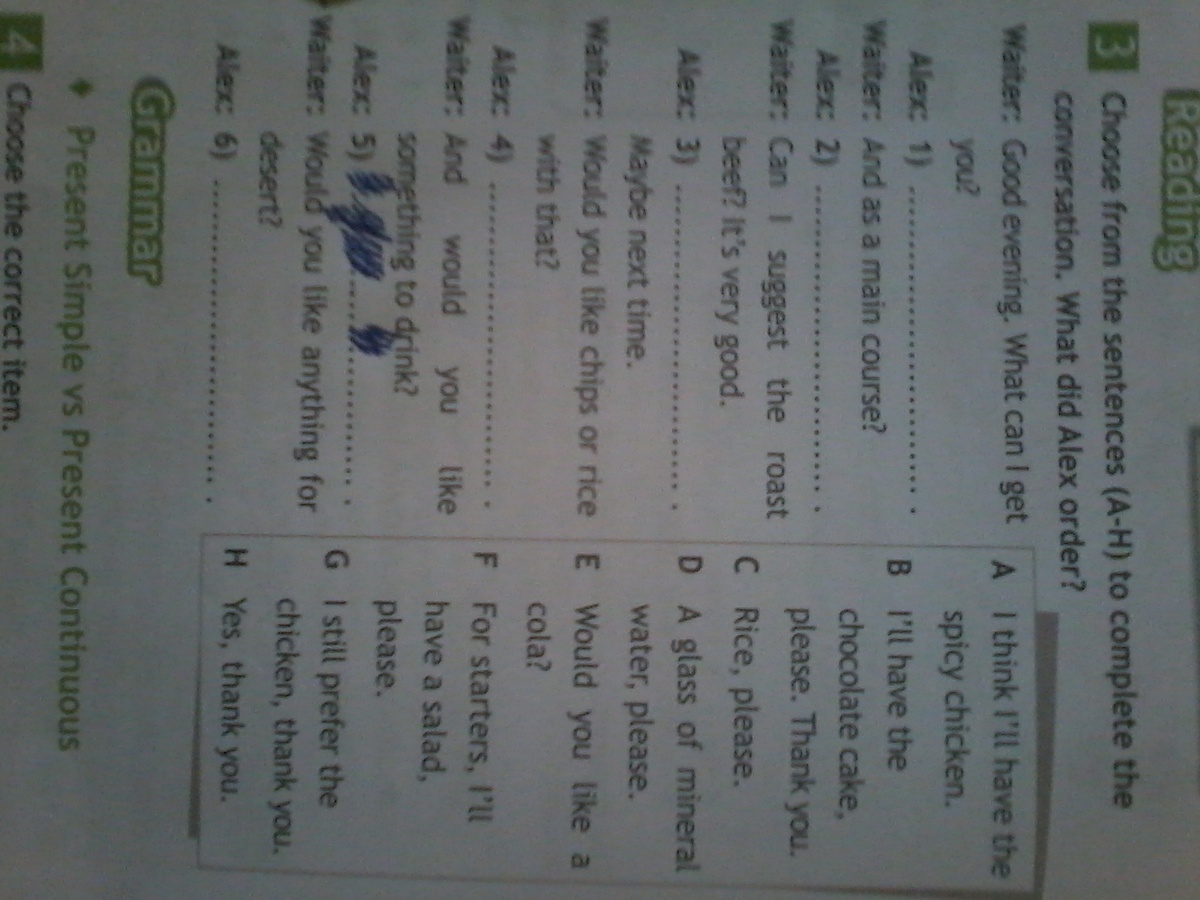 Reading
3 Choose from the sentences (A-H) to complete the
conversation. What did Alex order?
Waiter: Good evening. What can I get
you?
Alex: 1) ........................ .
Waiter: And as a main course?
Alex: 2) ........................ .
Waiter: Can I suggest the roast
beef? It's very good.
Alex: 3) ........................ .
Maybe next time.
Waiter: Would you like chips or rice
with that?
Alex: 4) ........................ .
Waiter: And would you like
something to drink?
Alex: 5) ........................ .
Waiter: Would you like anything for
desert?
Alex: 6) ........................ .
A I think I'll have the
spicy chicken.
B I'll have the
chocolate cake,
please. Thank you.
C Rice, please.
D A glass of mineral
water, please.
E Would you like a
cola?
F For starters, I'll
have a salad,
please.
G I still prefer the
chicken, thank you.
H Yes, thank you.
Grammar
♦ Present Simple vs Present Continuous
4 Choose the correct item.